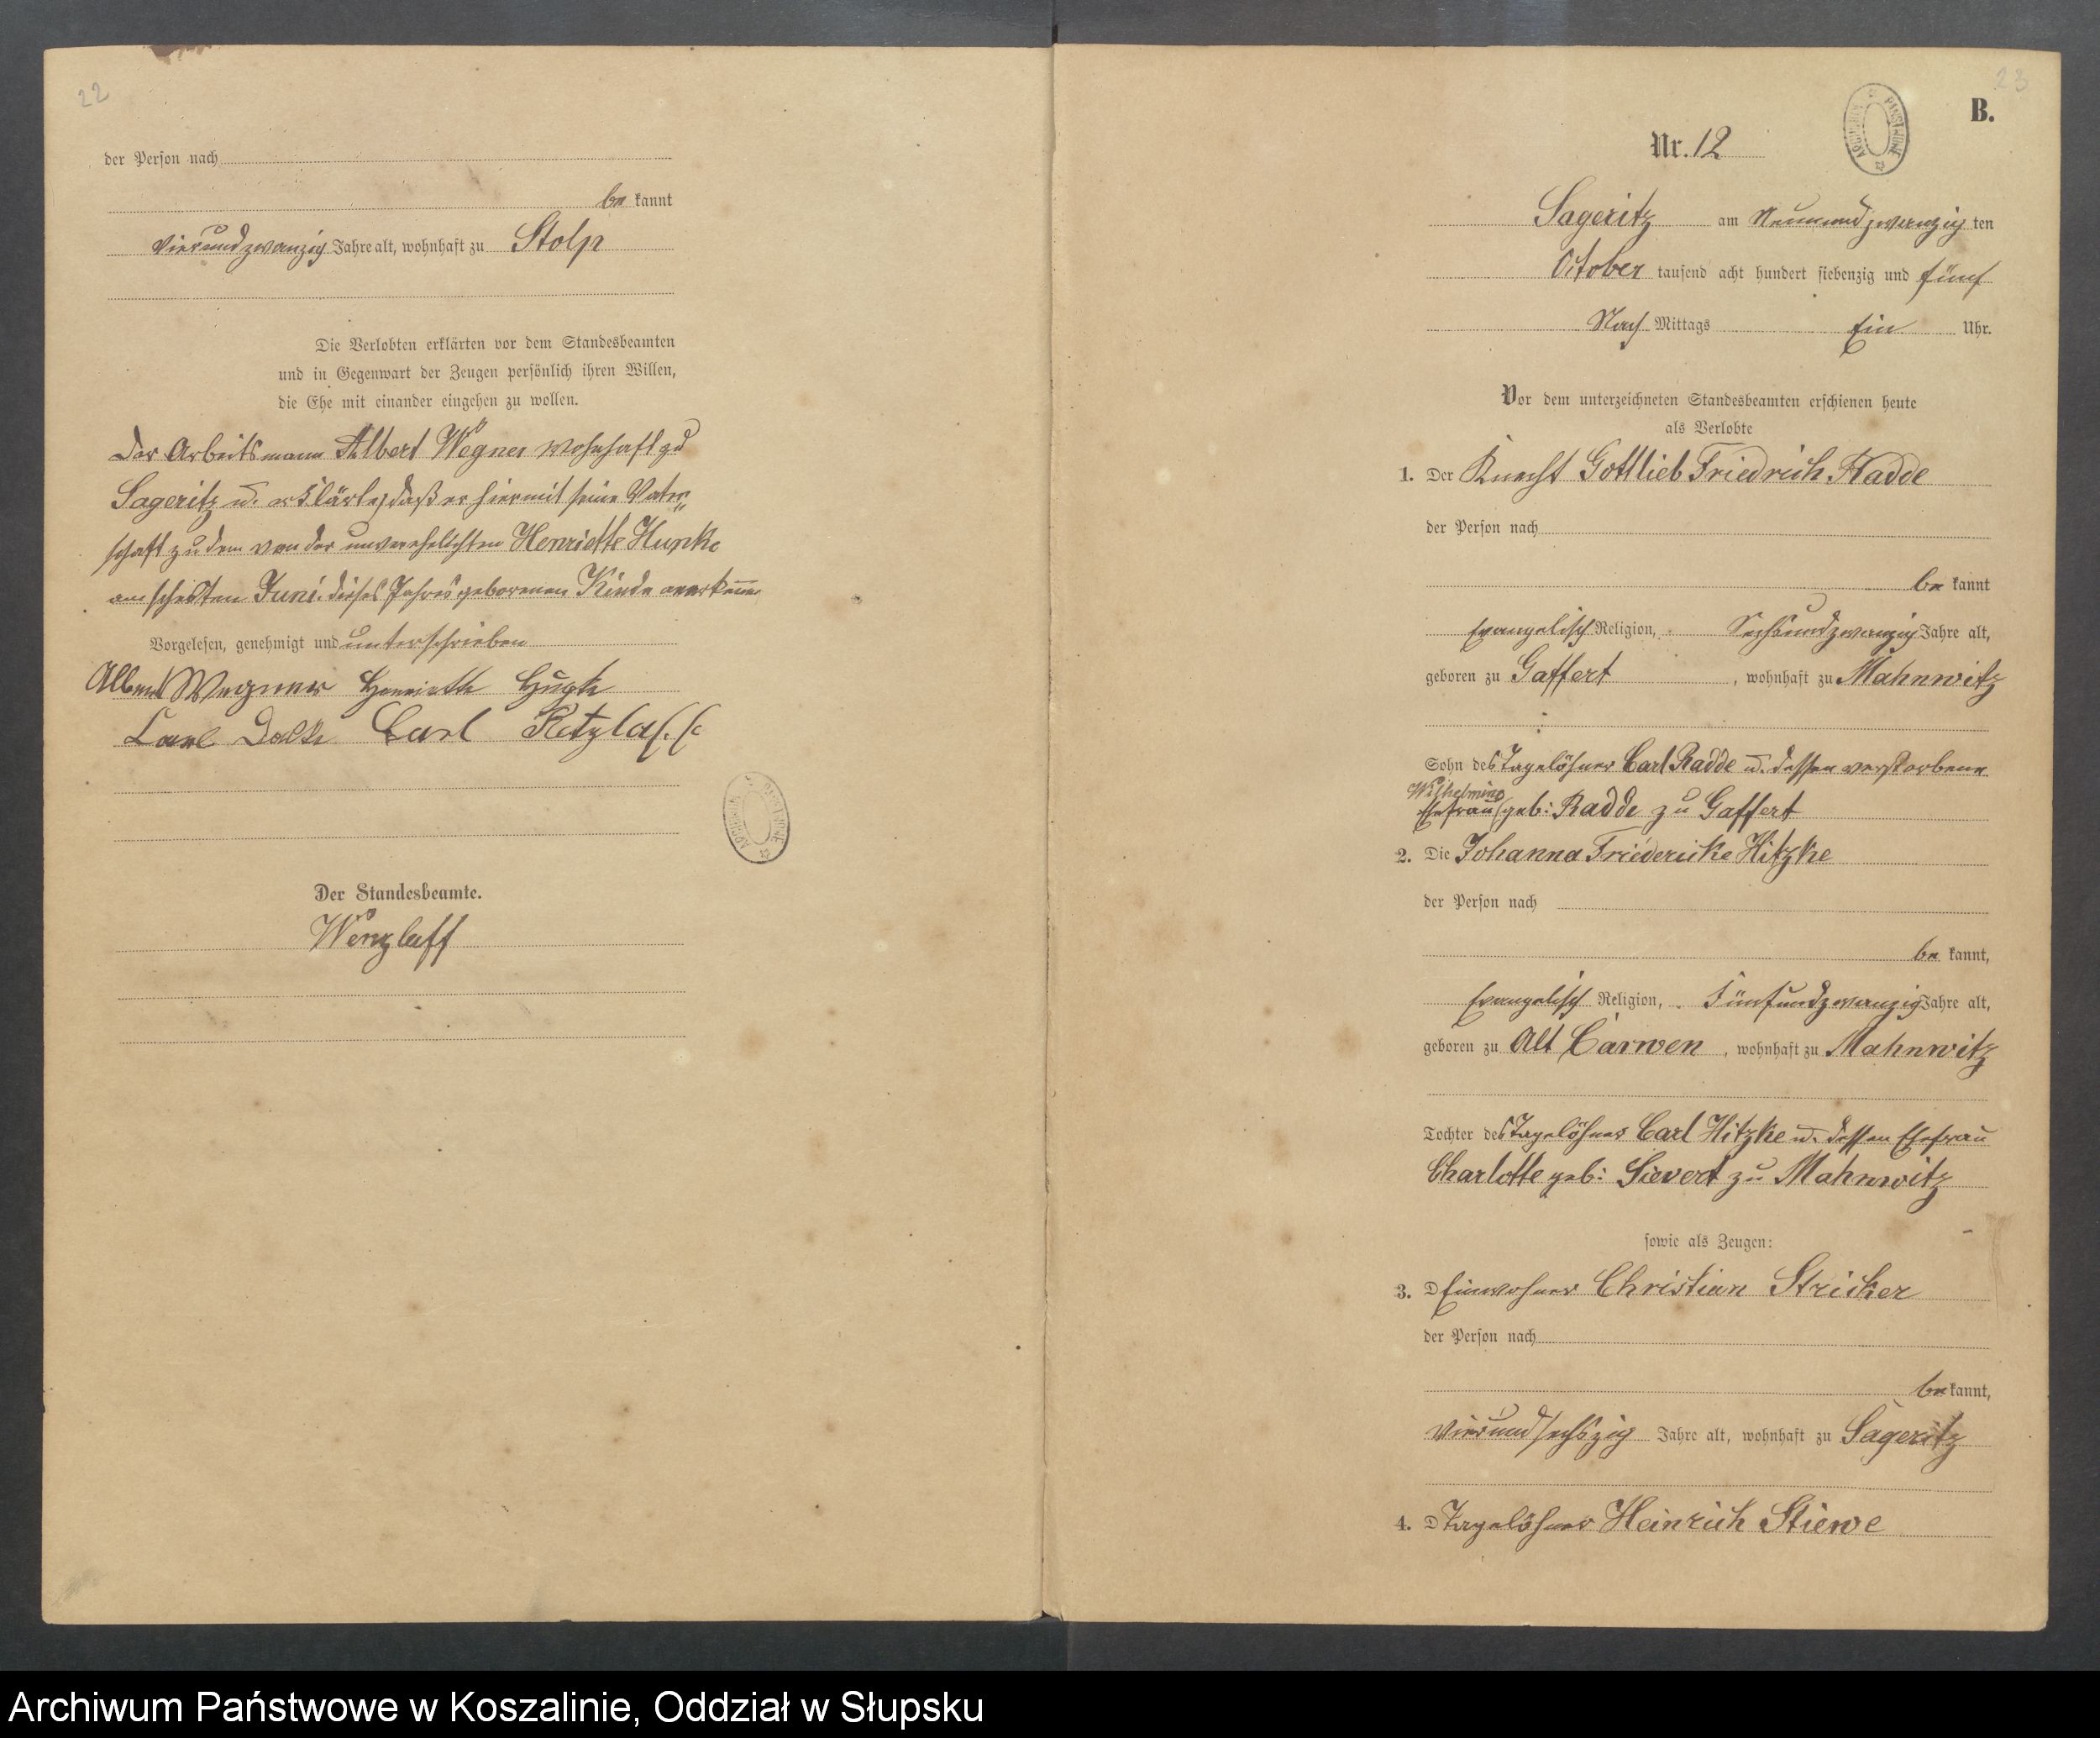 22
der Person nach
be kannt
vierundzwanzig Jahre alt, wohnhaft zu Stolp
Die Verlobten erklärten vor dem Standesbeamten
und in Gegenwart der Zeugen persönlich ihren Willen,
die Ehe mit einander eingehen zu wollen.
Der Arbeitsmann Albert Wegner wohnhaft zu
Sageritz u. erklärte, daß er hiermit seine Vater„
schaft zu dem von der unverehelichten Henriette Hupke
am sechsten Juni dieses Jahres geborenen Kinde anerkenne
Vorgelesen, genehmigt und unterschrieben
Albert Wegner Henriette
Carl Carl Retzlaff
Der Standesbeamte.
Wenzlaff
23
B.
Nr. 12
Sageritz am Neunundzwanzig ten
October tausend acht hundert siebenzig und fünf
Nach Mittags Ein Uhr.
Vor dem unterzeichneten Standesbeamten erschienen heute
als Verlobte
1. Der Knecht Gottlieb Friedrich Radde
der Person nach
be kannt
Evangelisch Religion, Sechsundzwanzig Jahre alt,
geboren zu Gaffert , wohnhaft zu Mahnwitz
Sohn des Tagelöhner Carl Radde u. dessen verstorbene
Wilhelmine
Ehefrau geb: Radde zu Gaffert
2. Die Johanna Friedericke Hitzke
der Person nach
be kannt,
Evangelisch Religion, Fünfundzwanzig Jahre alt,
geboren zu Alt Carwen , wohnhaft zu Mahnwitz
Tochter des Tagelöhner Carl Hitzke u. dessen Ehefrau
Charlotte geb: Sievert zu Mahnwitz
sowie als Zeugen:
3. D Einwohner Christian Stricker
der Person nach
be kannt,
vierundsechszig Jahre alt, wohnhaft zu Sageritz
4. D Tagelöhner Heinrich Stiewe
Archiwum Państwowe w Koszalinie, Oddział w Słupsku